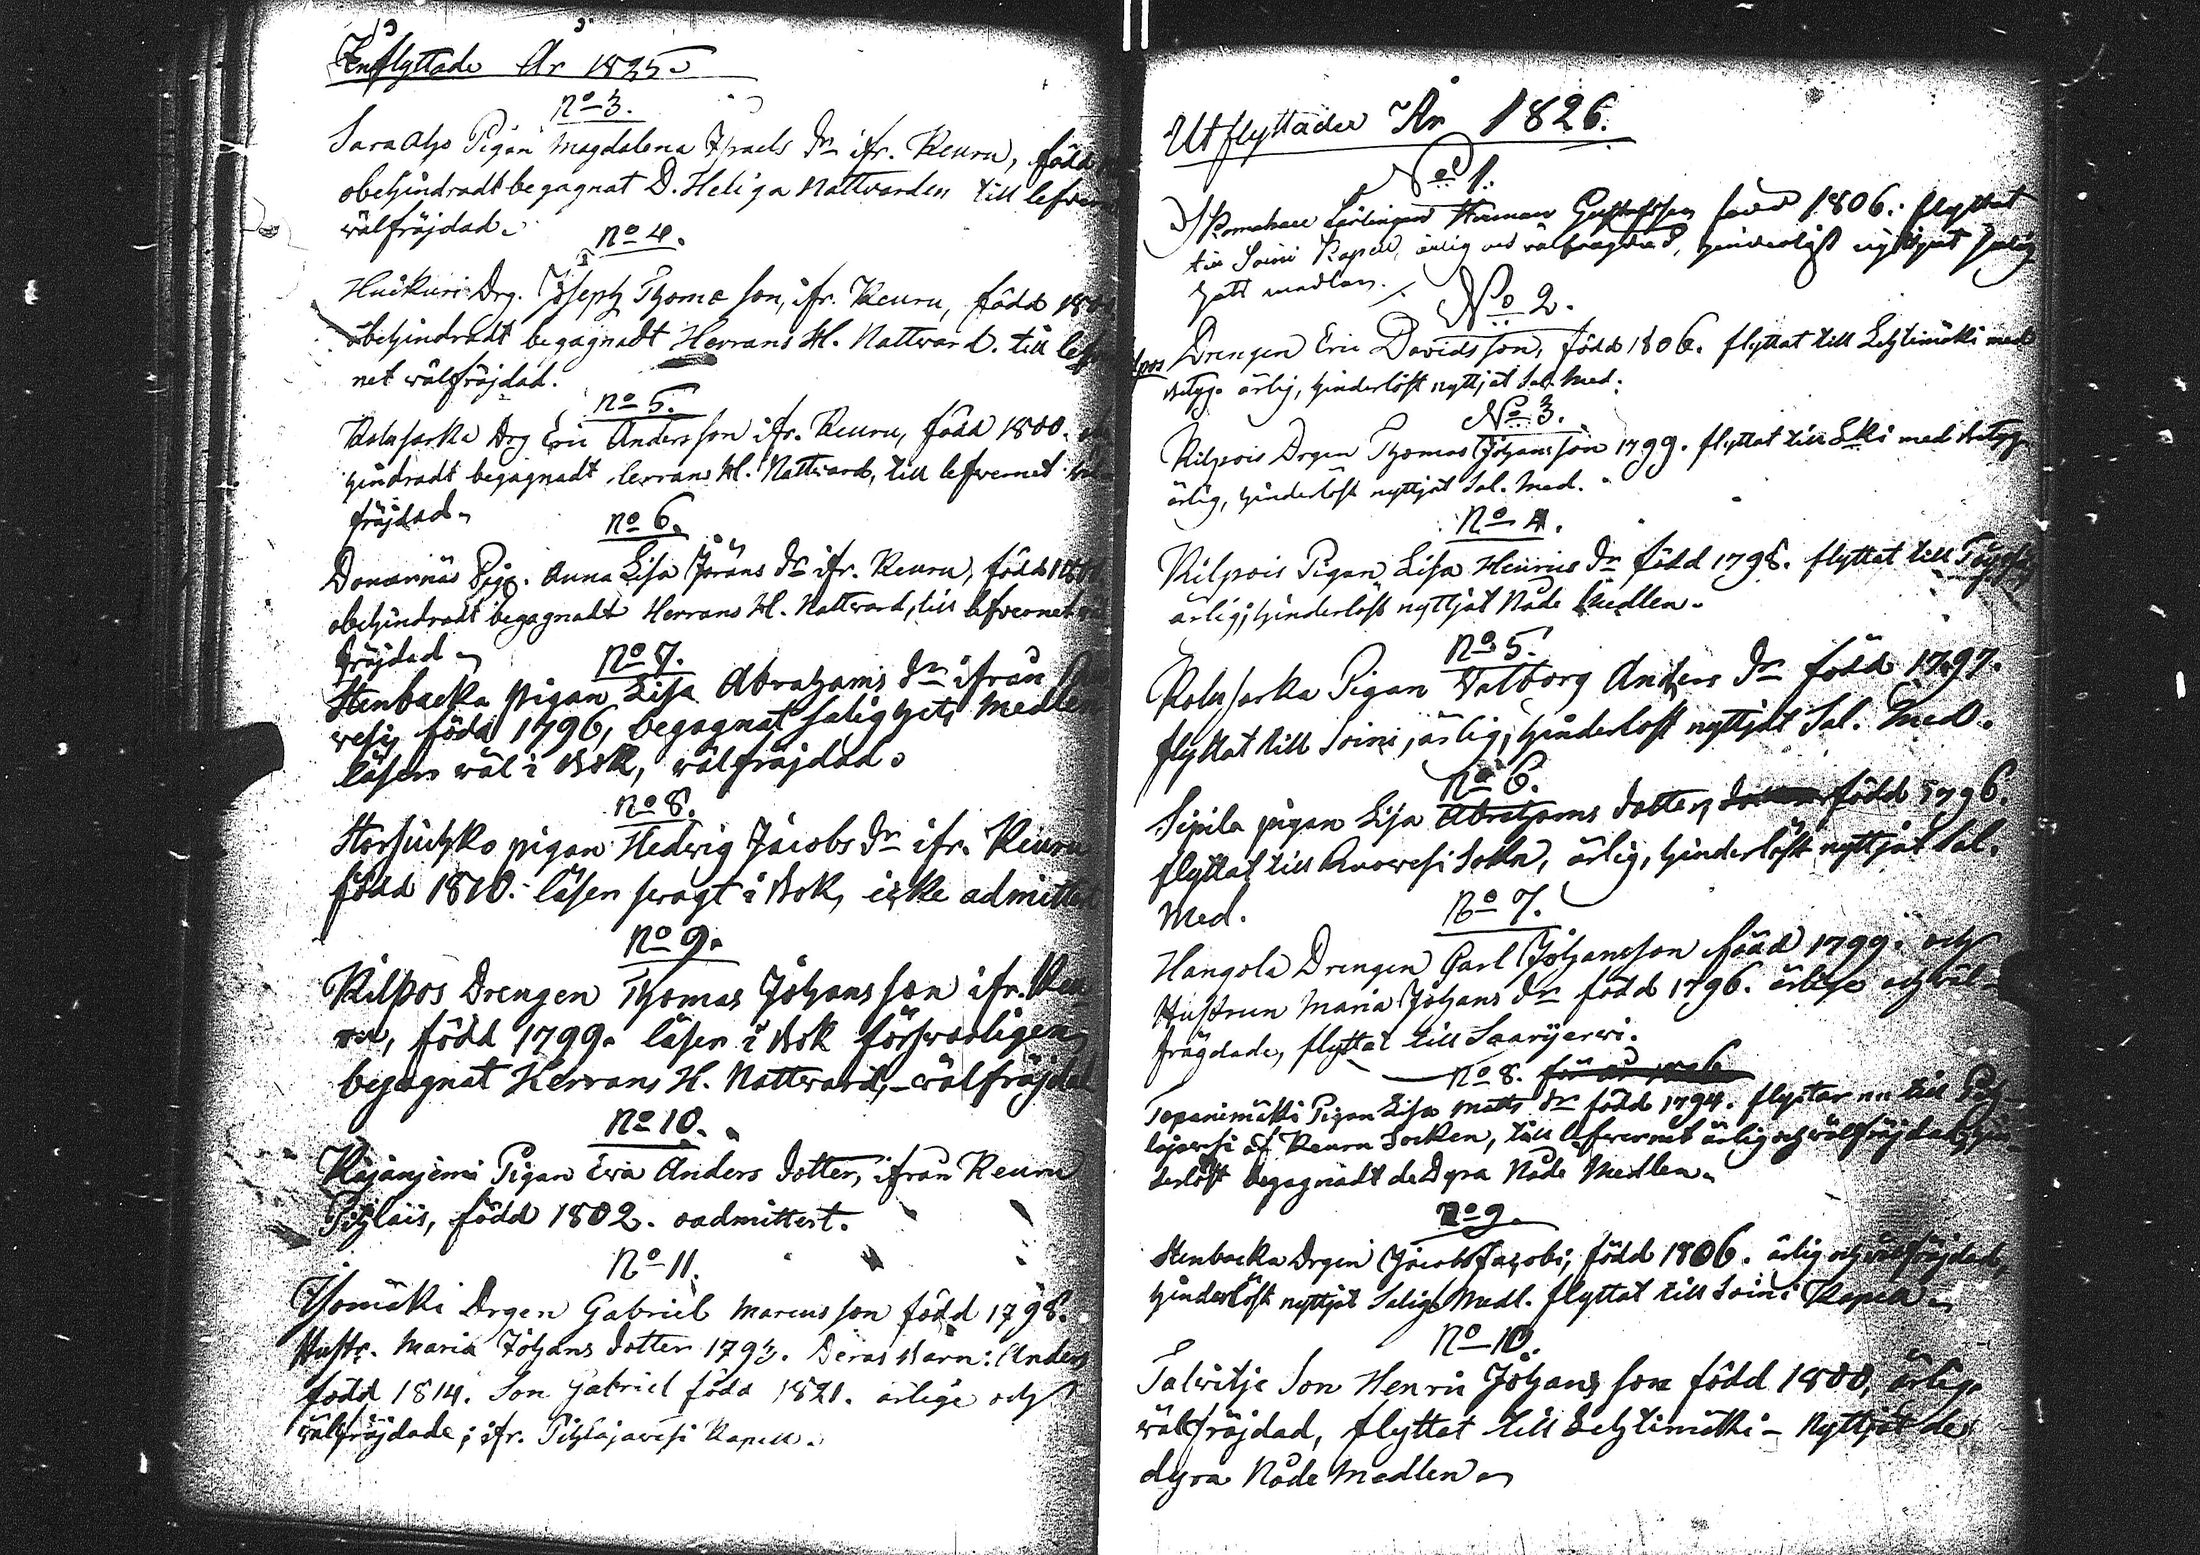 Inflyttade År 1825
No 3.
Sara aho Pigan Magdalena Israels Dr ifr. Keuru, född
obehindradt begagnat D. Heliga Nattvarden till lefver
wälfräjdad.
No 4.
Huikuri Drg. Joseph Thomæ son, ifr. Keuru, född 180
obehindradt begagnadt Herrans H. Nattvard. till lef
net wälfräjdad.
No 5.
Kolusarka Drg Eric Andersson ifr. Keuru, född 1800. o
hindradt begagnadt Herrans H. Nattvard, till lefvernet
fräjdad
No 6.
Donarnäs Pig. Anna Lisa Jörans Dr ifr. Keuru, född
obehindradt begagnadt Herrans H. Nattvard, till lefvernet
fräjdad
No 7.
Stenbacka pigan Lisa Abrahams Dr ifrån
vesi född 1796, begagnat salighets Medlen
läsen wäl i Bok, wälfräjdad.
No 8.
pigan Hedvig Jacobs Dr ifr. Keuru
född 1810. läsen swagt i Bok, icke admitter
No 9.
Kilpos Drengen Thomas Johansson ifr. Keu
ru, född 1799. läsen i Bok försvarligen
begagnat Herrans H. Nattvard, wälfräjdad
No 10.
Pigan Eva Anders dotter, ifrån Keuru
född 1802. oadmittert.
No 11.
Isomäki Drgen Gabriel Marcusson född 1798.
Hustr. Maria Johans dotter 1793. Deras Barn: Anders
född 1814. Son Gabriel född 1821. ärlige och
wälfräjdade; ifr. Pihlajavesi Kapell.
Utflyttade År 1826.
No 1.
Gustafsson 1806. flyttat
till Soini Kapell, ärlig
medlen.
No 2.
Drengen Eric Davidsson, född 1806. flyttat till Lehtimäki med
Betyg. ärlig, hinderlöst nyttjat Sal. Med.
No 3.
Kilpois Drgen Thomas Johansson 1799. flyttat till med Betyg
ärlig, hinderlöst nyttjat Sal. Med.
No 4.
Kilpois Pigan Lisa Henrics Dr född 1798. flyttat till
ärlig, hinderlöst nyttjat Nåde Medlen.
No 5.
Kolusarka Pigan Valborg Anders Dr född 1797.
flyttat till Soini, ärlig, hinderlöst nyttjat Sal. Med.
No 6.
Sipila pigan Lisa Abrahams dotter, född 1796.
flyttat till Ruovesi Sokn, ärlig, hinderlöst nyttjat Sal.
Med.
No 7.
Hangola Drengen Carl Johansson född 1799. och
Hustrun Maria Johans Dr född 1796. ärlige och wäl-
frägdade, flyttat till Saarijerwi.
No 8.
Pigan Lisa Matts Dr född 1794. flyttar nu till Pih-
lajavesi af Keuru Socken, till lefvernet ärlig och wälfräjdad, hin-
derlöst begagnadt de Dyra Nåde Medlen.
No 9.
Stenbacka Drgen Jacob Jacobs, född 1806. ärlig och wälfräjdad,
hinderlöst nyttjat Saligh. Medl. flyttat till Soini Kapell.
No 10.
Talvitje Son Henric Johansson född 1800, ärlig.
wälfräjdad, flyttat till Lehtimäki – Nyttjat de
dyra Nåde Medlen